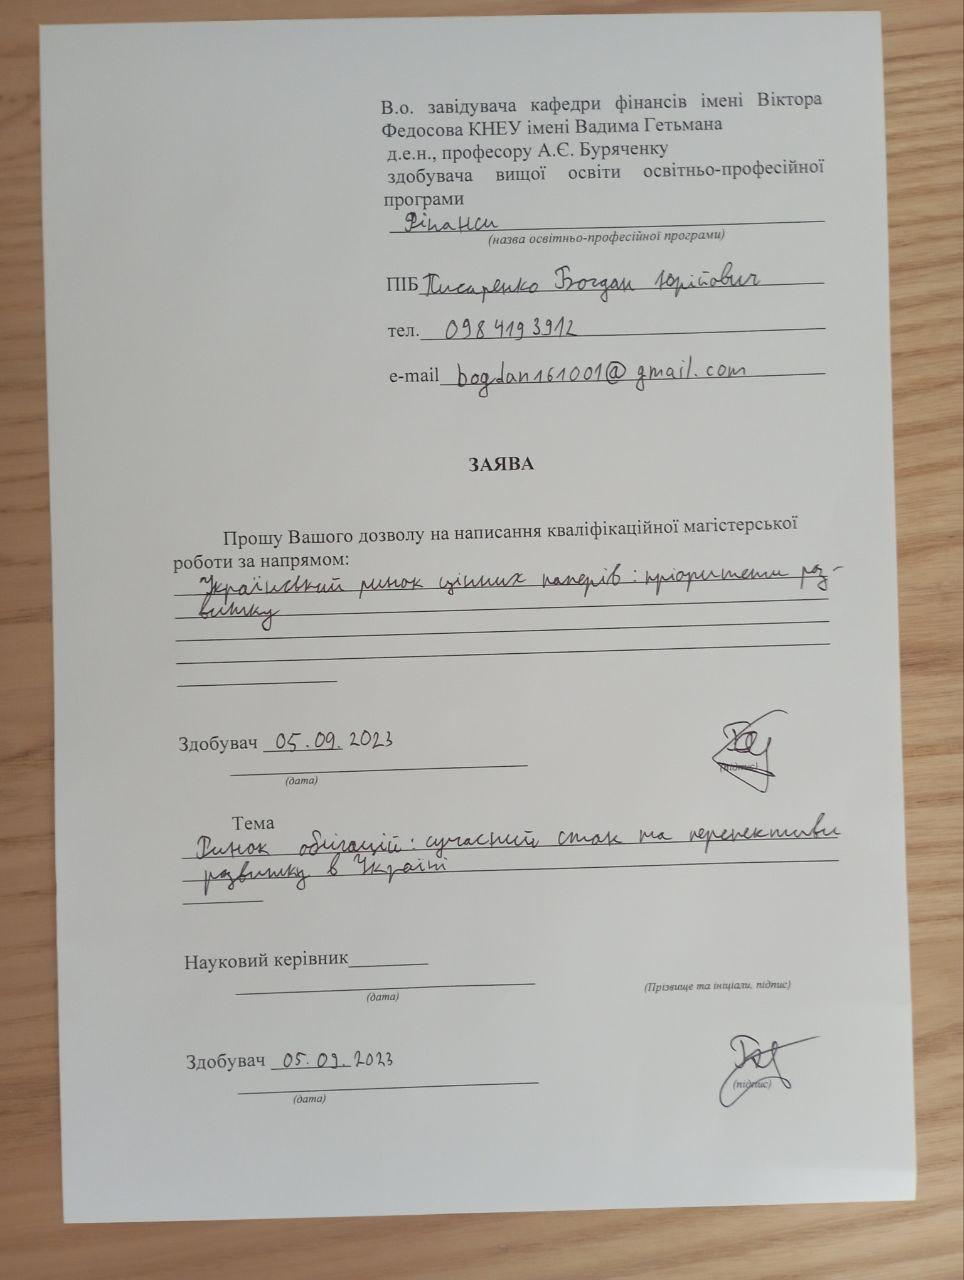 В.о. завідувача кафедри фінансів імені Віктора
Федосова КНЕУ імені Вадима Гетьмана
д.е.н., професору А.Є. Буряченку
здобувача вищої освіти освітньо-професійної
програми
Фінанси
(назва освітньо-професійної програми)
ПІБ Писаренко Богдан Юрійович
тел. 098 419 3912
e-mail bogdan161001@gmail.com
ЗАЯВА
Прошу Вашого дозволу на написання кваліфікаційної магістерської
роботи за напрямом:
Український ринок цінних паперів: пріоритети роз-
витку
Здобувач 05.09.2023
(дата)
(підпис)
Тема
Ринок облігацій: сучасний стан та перспективи
розвитку в Україні
Науковий керівник
(дата)
(Прізвище та ініціали, підпис)
Здобувач 05.09.2023
(дата)
(підпис)